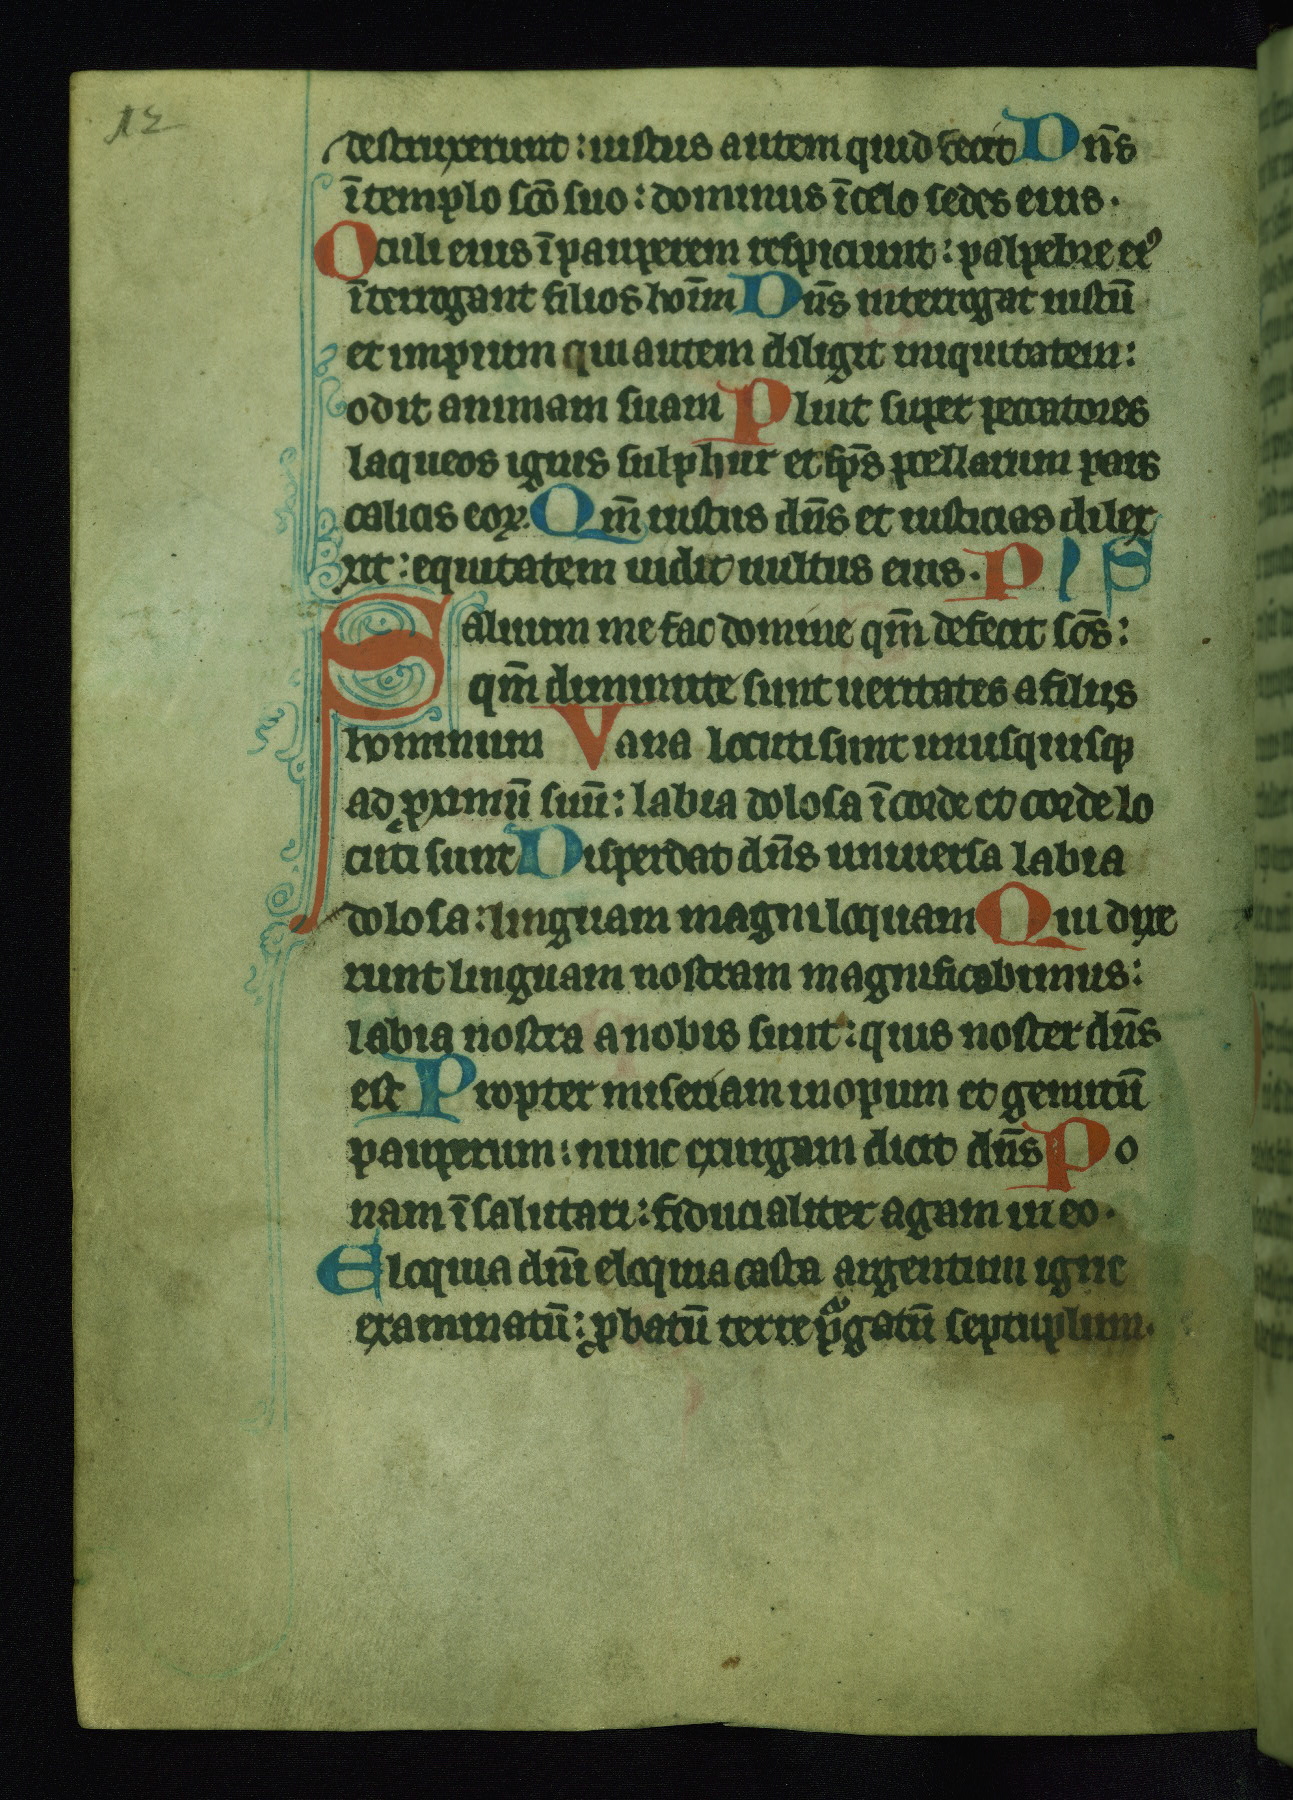 12
destruxerunt : iustus autem quid fecit Dn̄s
ī templo scō suo : dominus ī celo sedes eius .
Oculi eius ī pauperem respiciunt : palpebre ei⁹
īterrogant filios hoīm Dn̄s interrogat iustū
et impium qui autem diligit iniquitatem :
odit animam suam Pluit super peccatores
laqueos ignis sulphur et sp̄s pcellarum pars
calicis eoꝝ Qm̄ iustus dn̄s et iusticias dilex
xit : equitatem uidit uultus eius . P l S
Saluum me fac domine qm̄ defecit scō̄s :
qm̄ diminute sunt ueritates a filiis
hominum Vana locuti sunt unusquisqꝫ
ad ꝓximū suū : labia dolosa ī corde et corde lo
cuti sunt Disperdat dn̄s uniuersa labia
dolosa : linguam magniloquam Qui dixe
runt linguam nostram magnificabimus :
labia nostra a nobis sunt : quis noster dn̄s
est Propter miseriam inopum et gemitū
pauperum : nunc exurgam dicit dn̄s Po
nam ī salutari : fiducialiter agam in eo .
Eloquia dn̄i eloquia casta argentum igne
examinatū : ꝓbatū terre pᵃgatū septuplum .